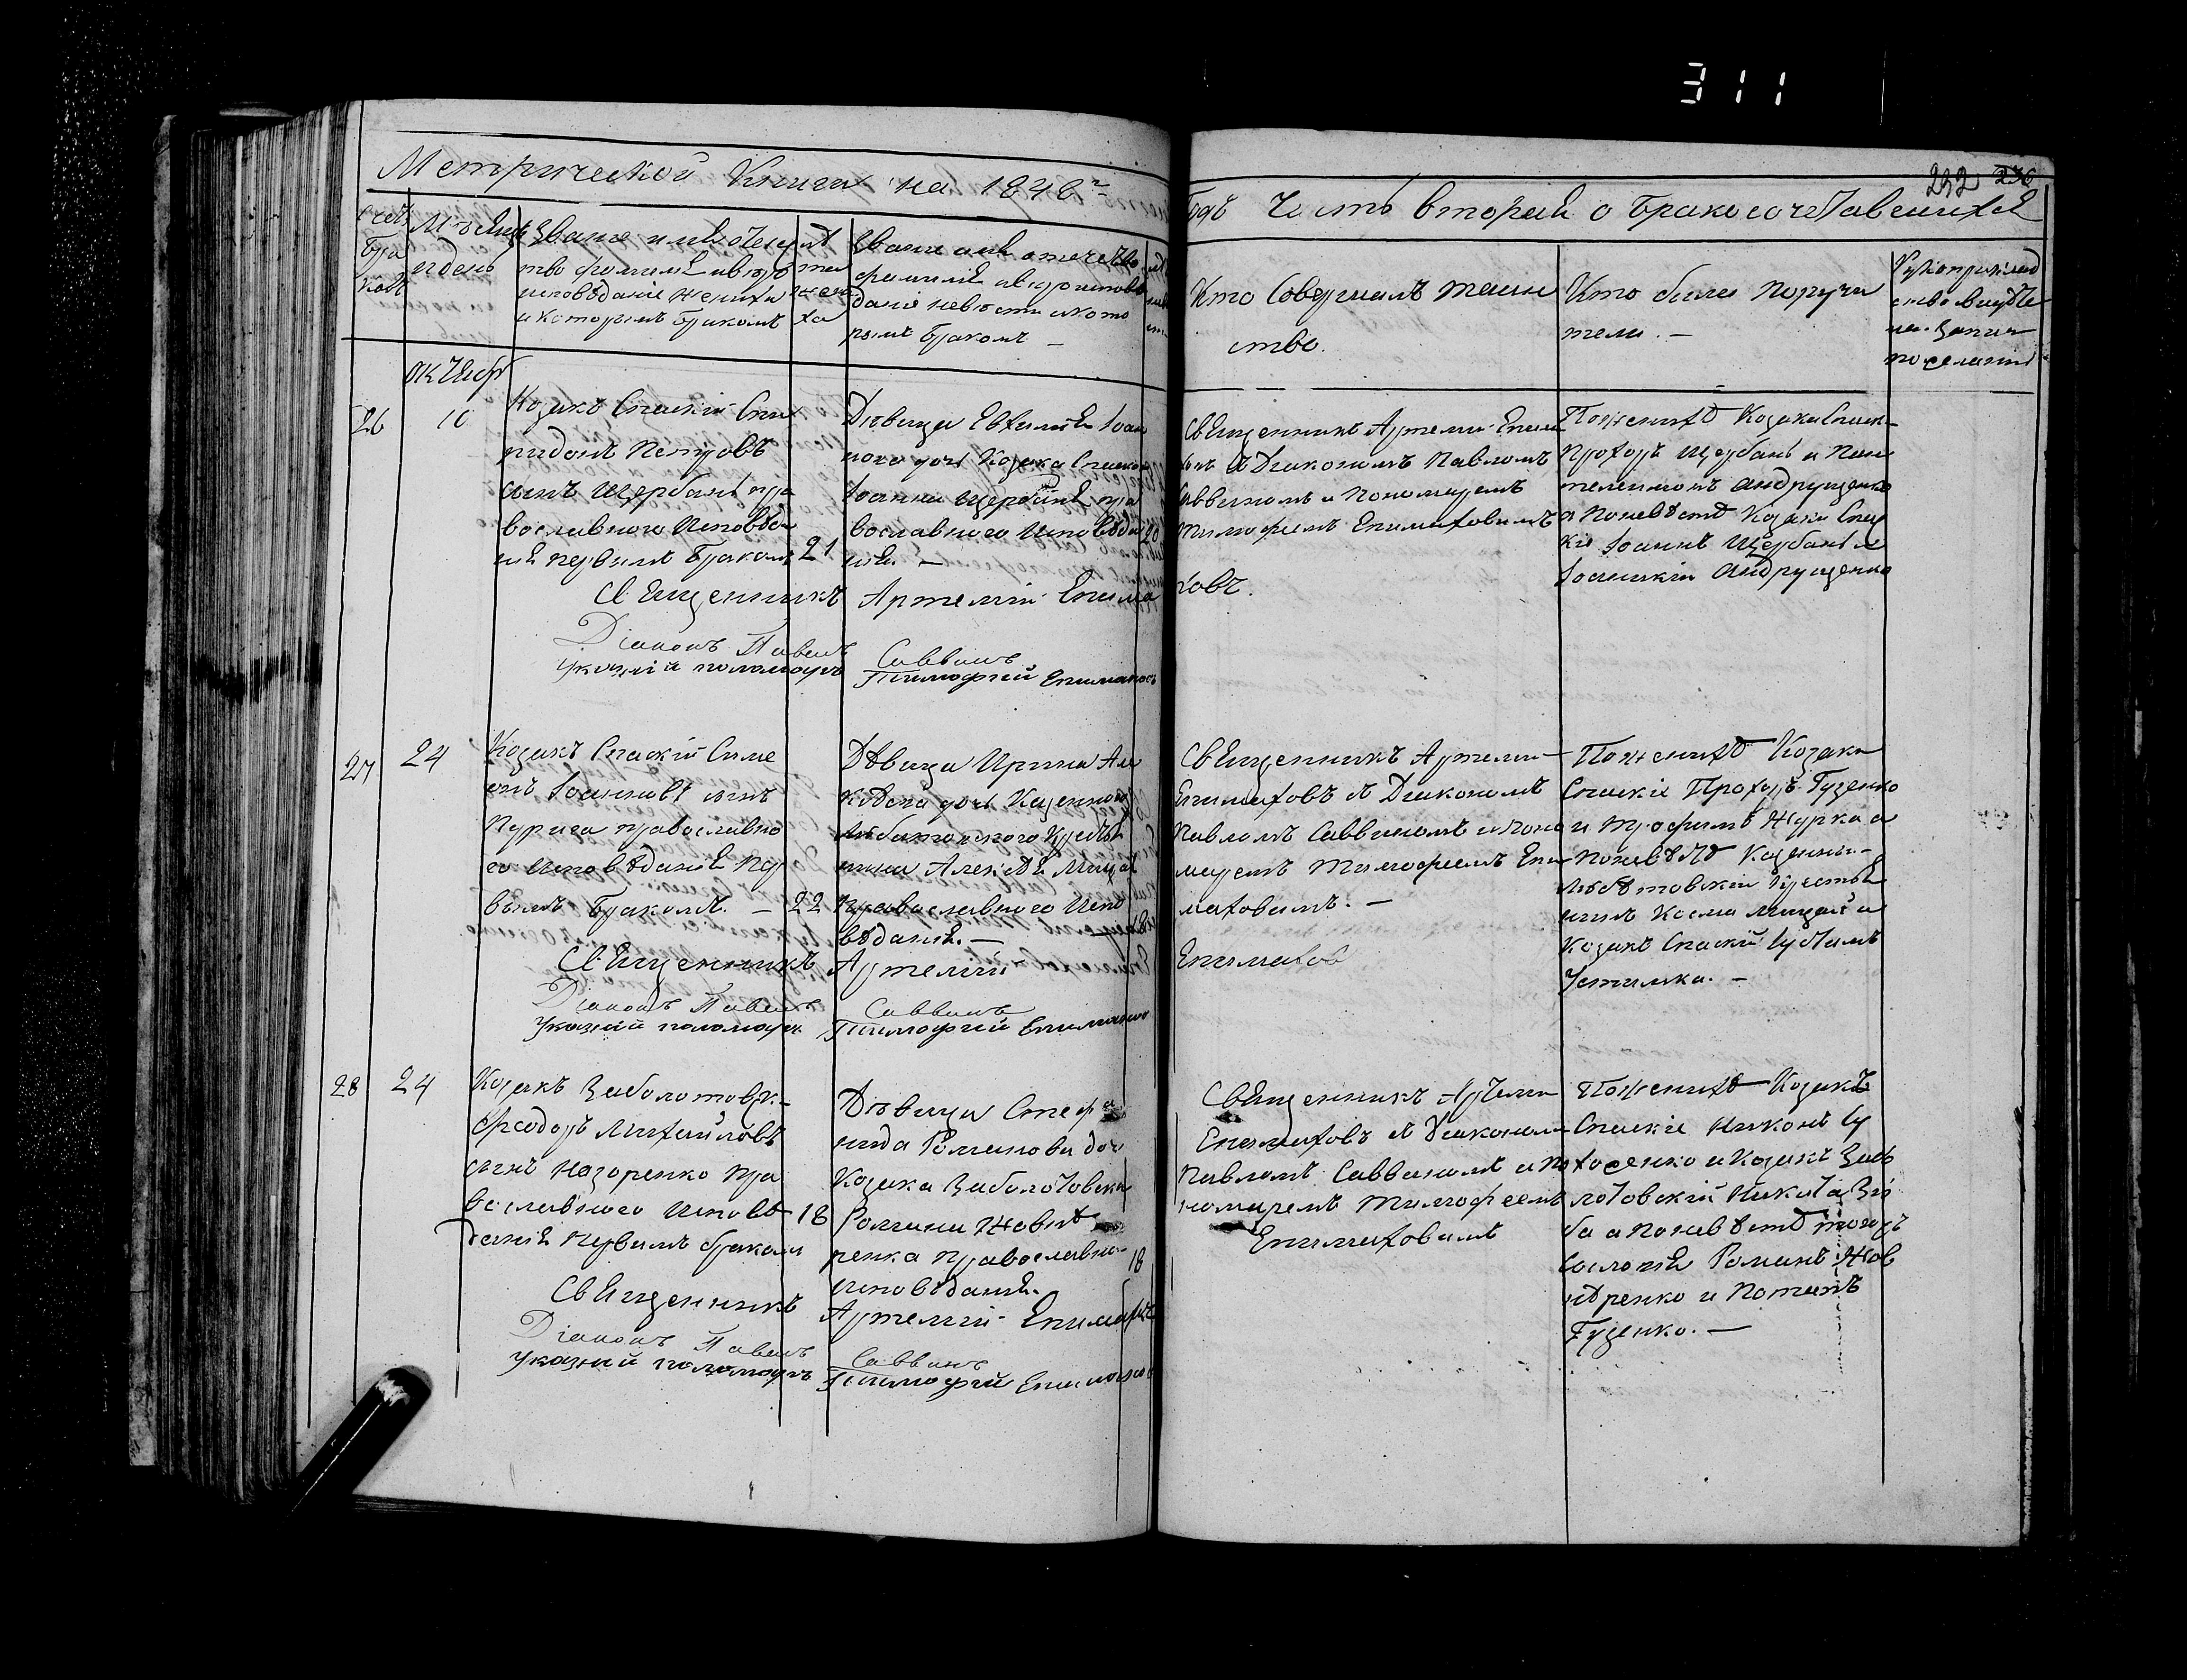 311
232 236
Метрической Книги на 1848й
Годъ Часть вторая о бракосочетавшихся
Счетъ
бра
ковъ
Мѣсяцъ
и день
Званіе имя отечес
тво фамилія и вѣро
исповѣданіе жениха
и которымъ бракомъ
лѣта
жени
ха
Званіе имя отечество
фамилія и вѣроисповѣ
даніе невѣсты и кото
рымъ бракомъ —
Кто совершалъ таин
ство.
Кто были поручи
тели. —
Рукоприклад
ство свидѣте
ли записи
по желанію
Октябр
26
10
Козакъ Спаскій Спи
ридонъ Петровъ
сынъ Щербань пра
вославного исповѣда
нія первымъ бракомъ
21
Дѣвица Евфимія Іоан
нова дочь Козака Спаского
Іоанна Щербаня пра
вославного исповѣда
нія. —
20
Священникъ Артемій Епима
ховъ съ Діакономъ Павломъ
Саввинымъ и Пономаремъ
Тимофеемъ Епимаховымъ
По женихѣ Козаки Спаск
Прохоръ Щербань и Пан
телеимонъ Андрущенко
а по невѣстѣ Козаки Спас
кіе Іоаннъ Щербань и
Іоанникій Андрущенко
Священникъ Артемій Епима
ховъ.
Діаконъ Павелъ Саввинъ
Указній пономарь Тимофій Епимаховъ
27
24
Козакъ Спаскій Симе
онъ Іоанновъ сынъ
Пурига православно
го исповѣданія пер
вымъ бракомъ. —
22
Дѣвица Ирина Але
ксѣева дочь Казенного
крестья
нина Алексѣя Мицая
Православного испо
вѣданія. —
Священникъ Артемій
Епимаховъ съ Діакономъ
Павломъ Саввинымъ и поно
маремъ Тимофеемъ Епи
маховымъ. —
По женихѣ Козаки
Спаскіе Прохоръ Гузенко
и Трофимъ Журка а
по невѣстѣ Казенны
крестья
нинъ Косма Мицай и
Козакъ Спаскій Іустинъ
Устимка. —
Священникъ Артемій Епимахов
Діаконъ Павелъ Саввинъ
Указній пономарь Тимофій Епимаховъ
28
24
Козакъ Заболотовск
Феодоръ Михайловъ
сынъ Назоренко пра
вославного исповѣ
данія первымъ бракомъ
18
Дѣвица Стефа
нида Романова доч
Козака Заболотовска
Романа Жовнѣ
ренка православно
исповѣданія.
18
Священникъ Артеми
Епимаховъ съ Діакономъ
Павломъ Саввинымъ и по
номаремъ Тимофеемъ
Епимаховымъ
По женихѣ Козакъ
Спаскіе Никонъ Су
хосенко и Козакъ Забо
лотовскій Никита Зю
ба а по невѣстѣ того жъ
сословія Романъ Жов
нѣренко и Потапъ
Гузенко. —
Священникъ Артемій Епимаховъ
Діаконъ Павелъ Саввинъ
Указній пономарь Тимофій Епимаховъ